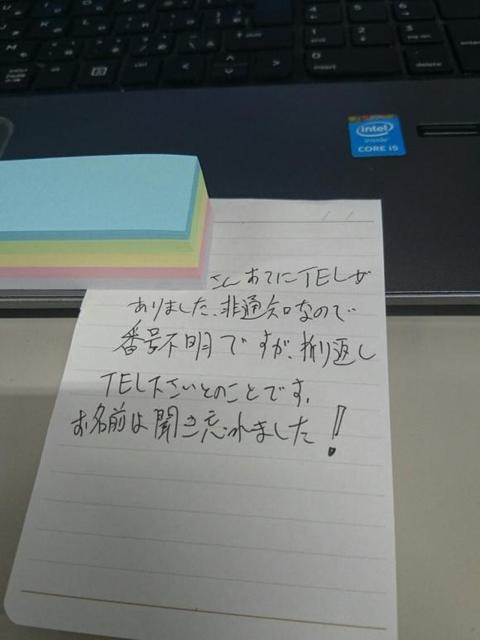 intel
inside
CORE i5
insert
delete
enter
さん あてにTELが
ありました、非通知なので
番号不明ですが、折り返し
TEL下さいとのことです。
お名前は聞き忘れました!